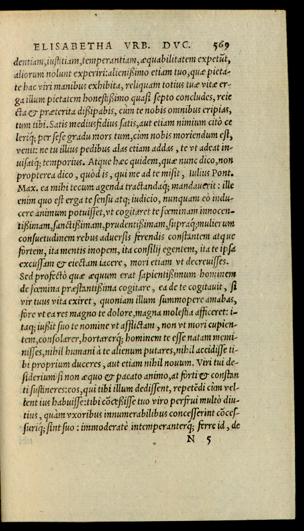 ELISABETHA VRB. DVC. 569
dentiam, iustitiam, temperantiam, æquabilitatem expetūt,
aliorum nolunt experiri: alienißimo etiam tuo, quæ pieta-
te hac viri manibus exhibita, reliquam totius tuæ vitæ er-
ga illum pietatem honestißimo quasi septo concludes, reie
cta & præterita dißipabis, cùm te nobis omnibus eripias,
tum tibi. Satis mediusfidius satis, aut etiam nimium citò ce
leriq́; per sese gradu mors tum, cùm nobis moriendum est,
venit: ne tu illius pedibus alas etiam addas, te vt adeat in-
uisatq́; temporius. Atque hæc quidem, quæ nunc dico, non
propterea dico, quòd is, qui me ad te misit, Iulius Pont.
Max. ea mihi tecum agenda tractandaq́; mandauerit: ille
enim quo est erga te sensu atq; iudicio, nunquam eò indu-
cere animum potuisset, vt cogitaret te fœminam innocen-
tißimam, sanctißimam, prudentißimam, supraq́; mulierum
consuetudinem rebus aduersis ferendis constantem atque
fortem, ita mentis inopem, ita consilij egentem, ita te ipsa
excussam & eiectam iacere, mori etiam vt decreuisses.
Sed profectò quæ æquum erat sapientißimum hominem
de fœmina præstantißima cogitare, ea de te cogitauit, si
vir tuus vita exiret, quoniam illum summopere amabas,
fore vt ea res magno te dolore, magna molestia afficeret: i-
taq; iußit suo te nomine vt afflictam, non vt mori cupien-
tem, consolarer, hortarerq́; hominem te esse natam memi-
nisses, nihil humani à te alienum putares, nihil accidisse ti-
bi proprium duceres, aut etiam nihil nouum. Viri tui de-
siderium si non æquo & pacato animo, at forti & constan
ti sustinere: eos, qui tibi illum dedissent, repetēdi cùm vel-
lent ius habuisse: tibi cōceßisse tuo viro perfrui multò diu-
tius, quàm vxoribus innumerabilibus concesserint cōces-
suriq́; sint suo: immoderatè intemperanterq́; ferre id, de
N 5